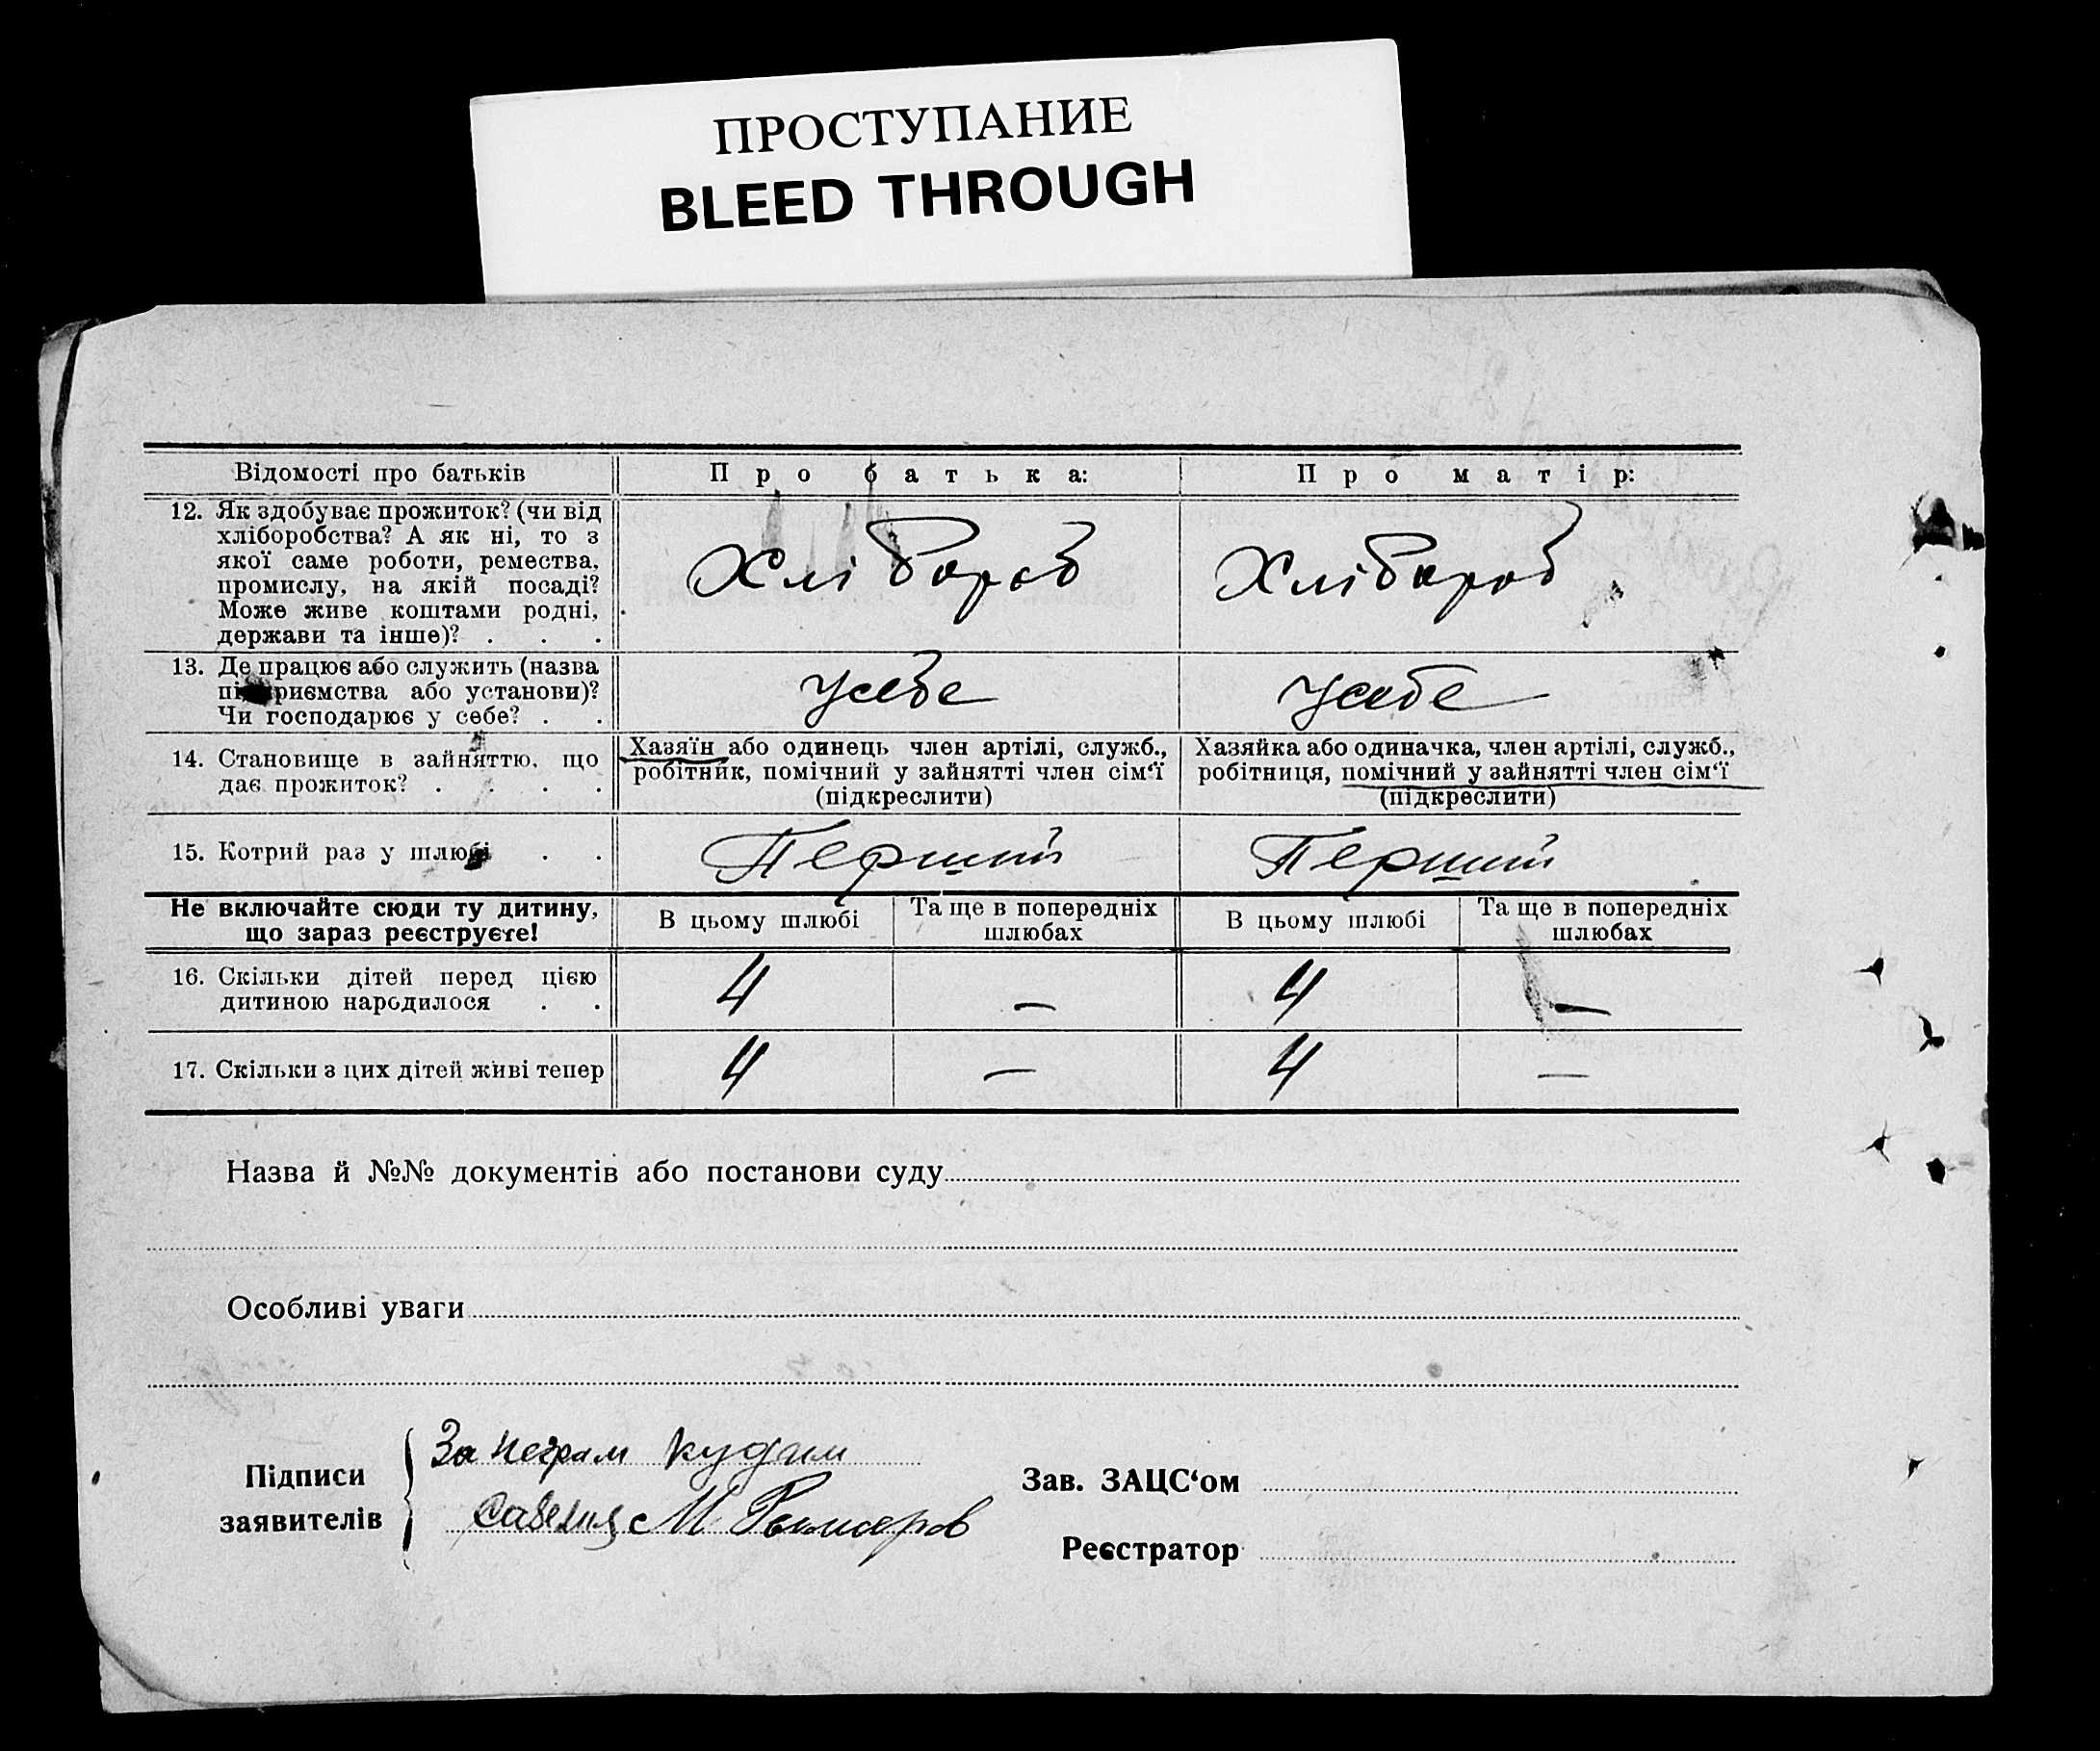 ПРОСТУПАНИЕ
BLEED THROUGH
Відомості про батьків
Про батька:
Про матір:
12. Як здобуває прожиток? (чи від
хліборобства? А як ні, то з
якої саме роботи, ремества,
промислу, на якій посаді?
Може живе коштами родні,
держави та інше)? . . .
Хлібороб
Хлібороб
13. Де працює або служить (назва
підприємства або установи)?
Чи господарює у себе? . .
усебе
усебе
14. Становище в зайняттю, що
дає прожиток? . . . .
Хазяїн або одинець член артілі, служб.,
робітник, помічний у зайнятті член сім‘ї
(підкреслити)
Хазяйка або одиначка, член артілі, служб.,
робітниця, помічний у зайнятті член сім‘ї
(підкреслити)
15. Котрий раз у шлюбі . .
Перший
Перший
Не включайте сюди ту дитину,
що зараз реєструєте!
В цьому шлюбі
Та ще в попередніх
шлюбах
В цьому шлюбі
Та ще в попередніх
шлюбах
16. Скільки дітей перед цією
дитиною народилося . .
4 — 4 —
17. Скільки з цих дітей живі тепер
4 — 4 —
Назва й №№ документів або постанови суду
Особливі уваги
Підписи
заявителів
За неграм
М
Зав. ЗАЦС‘ом
Реєстратор